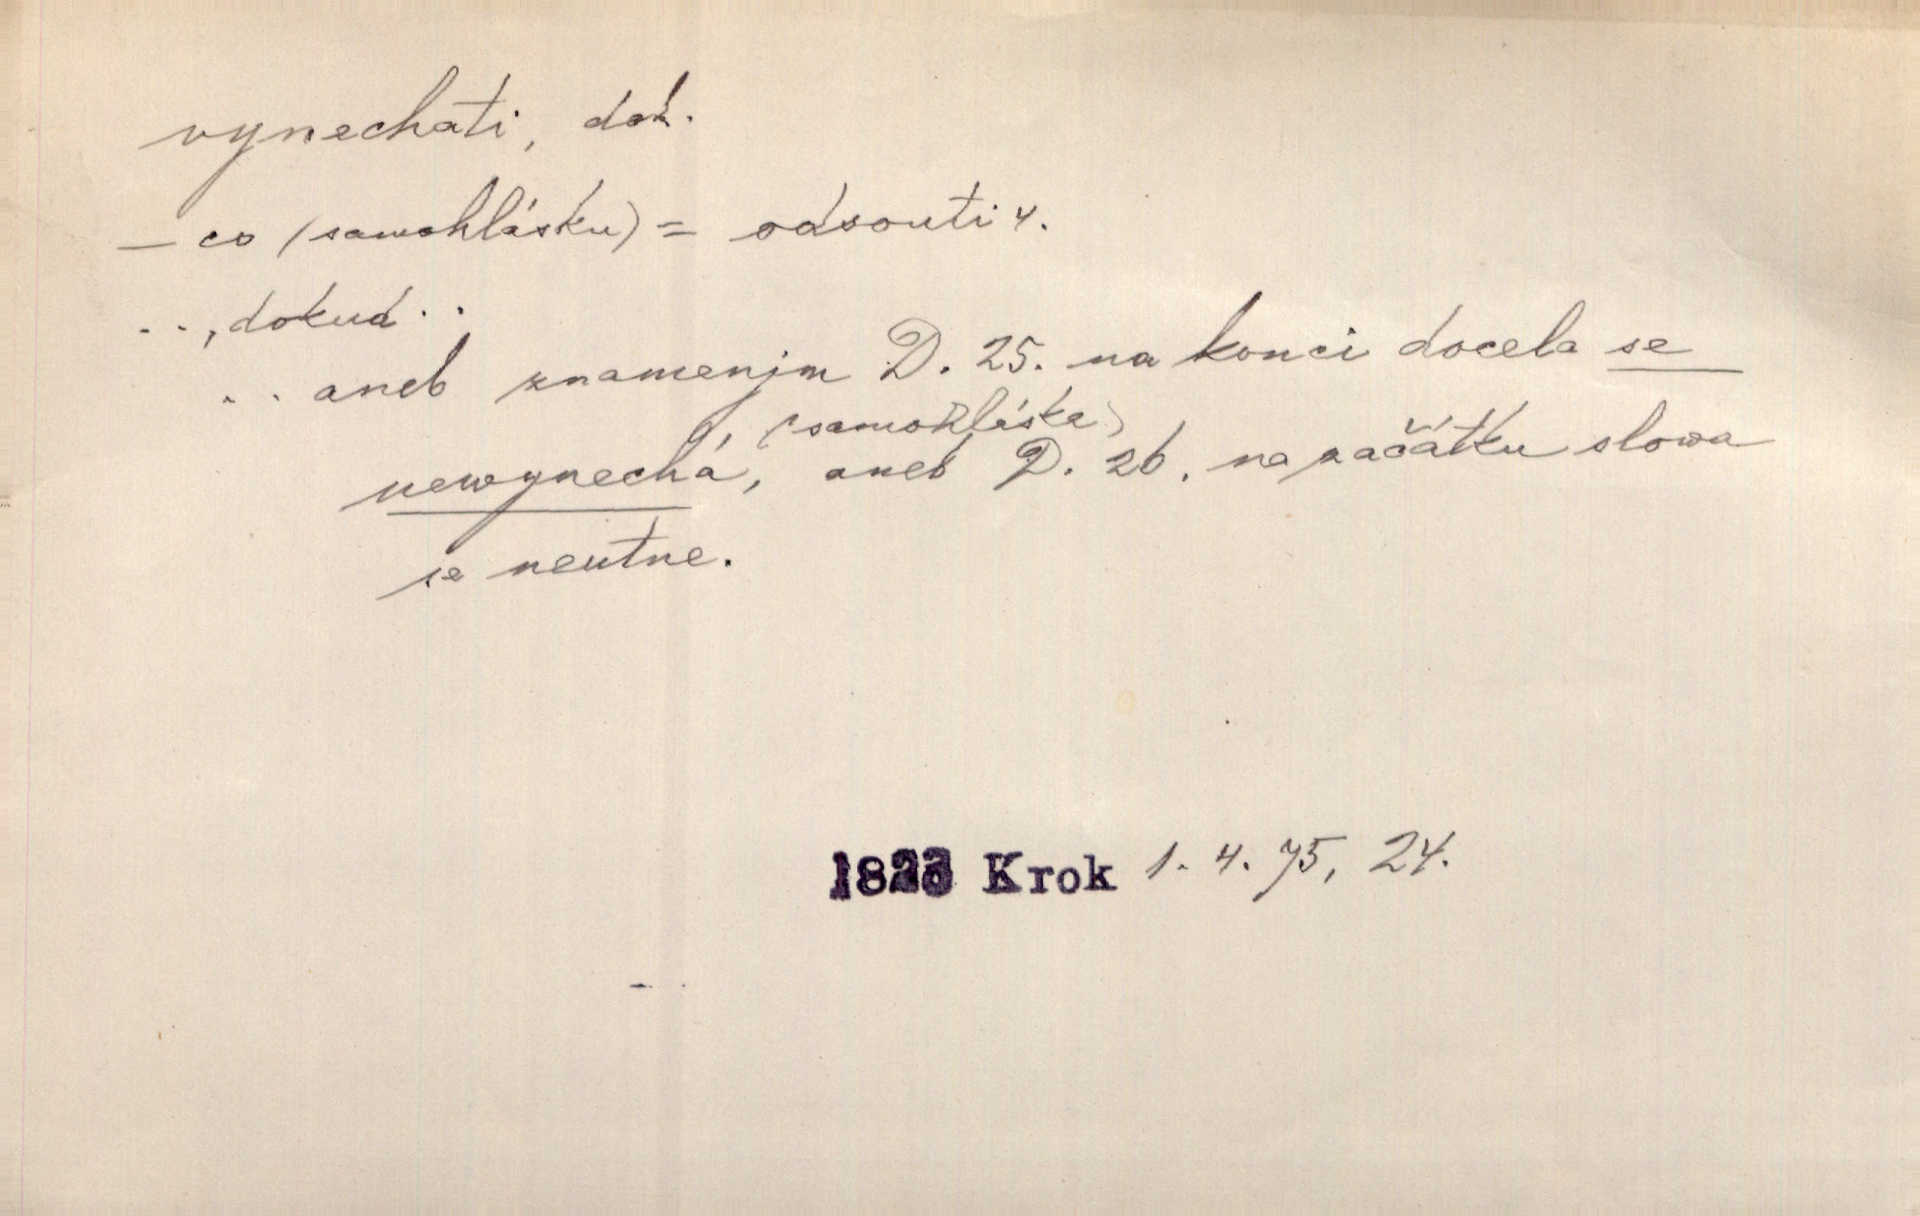 vynechati, dok.
— co (samohlásku) = odsouti 4.
..., dokud..
.. aneb znamenjm D. 25. na konci docela se
(samohláska)
newynechá, aneb D. 26. na začátku slowa
se neutne.
1823 Krok 1. 4. 75, 24.